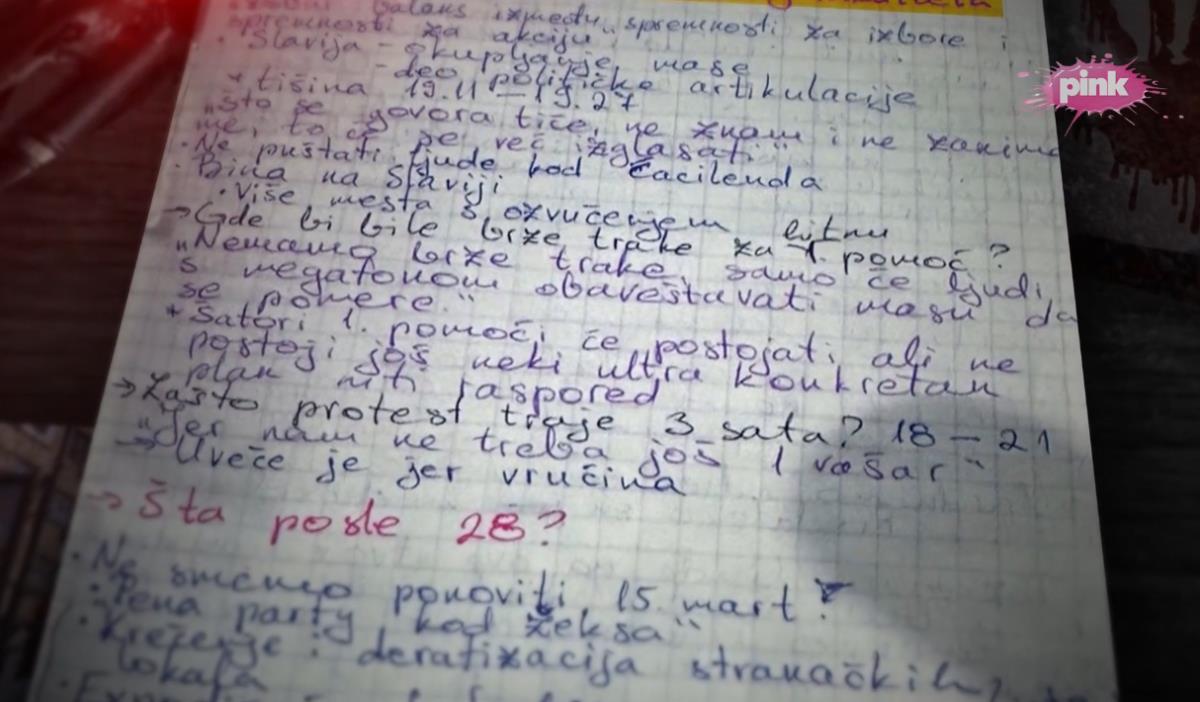 balans između „spremnosti za izbore i
spremnosti za akciju"
• Slavija - okupljanje mase
- deo političke artikulacije
* tišina 19.11 - 19.27
„što se govora tiče, ne znam i ne zanima
me, to će se već izglasati"
• Ne puštati ljude kod Ćacilenda
• Bina na Slaviji
• Više mesta s ozvučenjem
→ Gde bi bile brze trake za hitnu 1. pomoć?
„Nemamo brze trake, samo će ljudi
s megafonom obaveštavati masu da
se pomere."
* Šatori 1. pomoći će postojati, ali ne
postoji još neki ultra konkretan
plan niti raspored
→ Zašto protest traje 3 sata? 18 - 21
„Jer nam ne treba još 1 vašar"
→ Uveče je jer vrućina
→ Šta posle 28?
• Ne smemo ponoviti 15. mart!
• „Pena party kod Žeksa"
• Krečenje i deratizacija stranačkih
lokala
pink